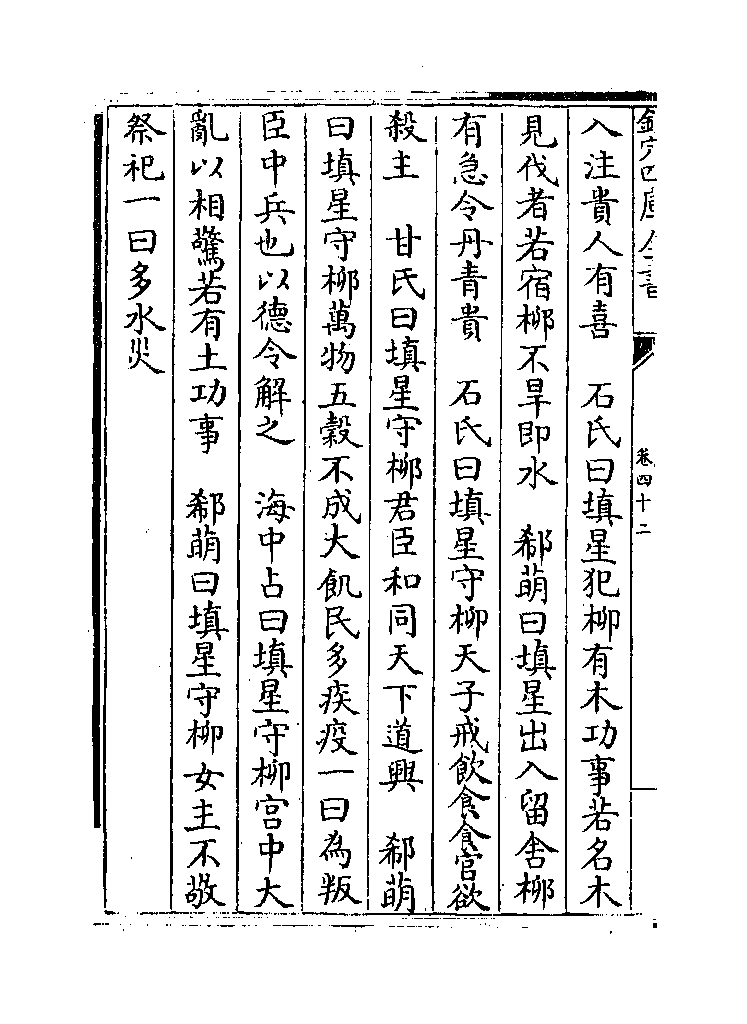 欽定四庫全書
卷四十二
入注貴人有喜　石氏曰填星犯柳有木功事若名木
見伐者若宿柳不旱即水　郗萌曰填星出入留舍柳
有急令丹青貴　石氏曰填星守柳天子戒飲食食官欲
殺主　甘氏曰填星守柳君臣和同天下道興　郗萌
曰填星守柳萬物五穀不成大飢民多疾疫一曰為叛
臣中兵也以德令解之　海中占曰填星守柳宫中大
亂以相驚若有土功事　郗萌曰填星守柳女主不敬
祭祀一曰多水災